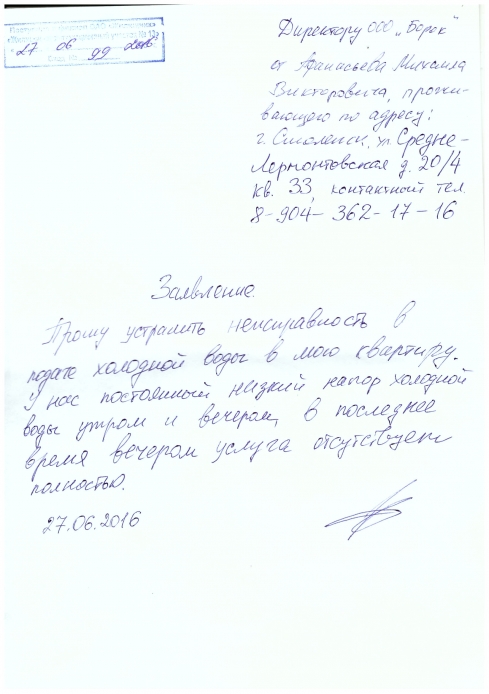 27 06 2016
Директору ООО „Борок"
от Афанасьева Михаила
Викторовича, прожи-
вающего по адресу:
г. Смоленск, ул Средне-
Лермонтовская д. 20/4
кв. 33, контактный тел.
8-904-362-17-16
Заявление.
Прошу устранить неисправность в
подаче холодной воды в мою квартиру.
У нас постоянный низкий напор холодной
воды утром и вечером, в последнее
время вечером услуга отсутствует
полностью.
27.06.2016